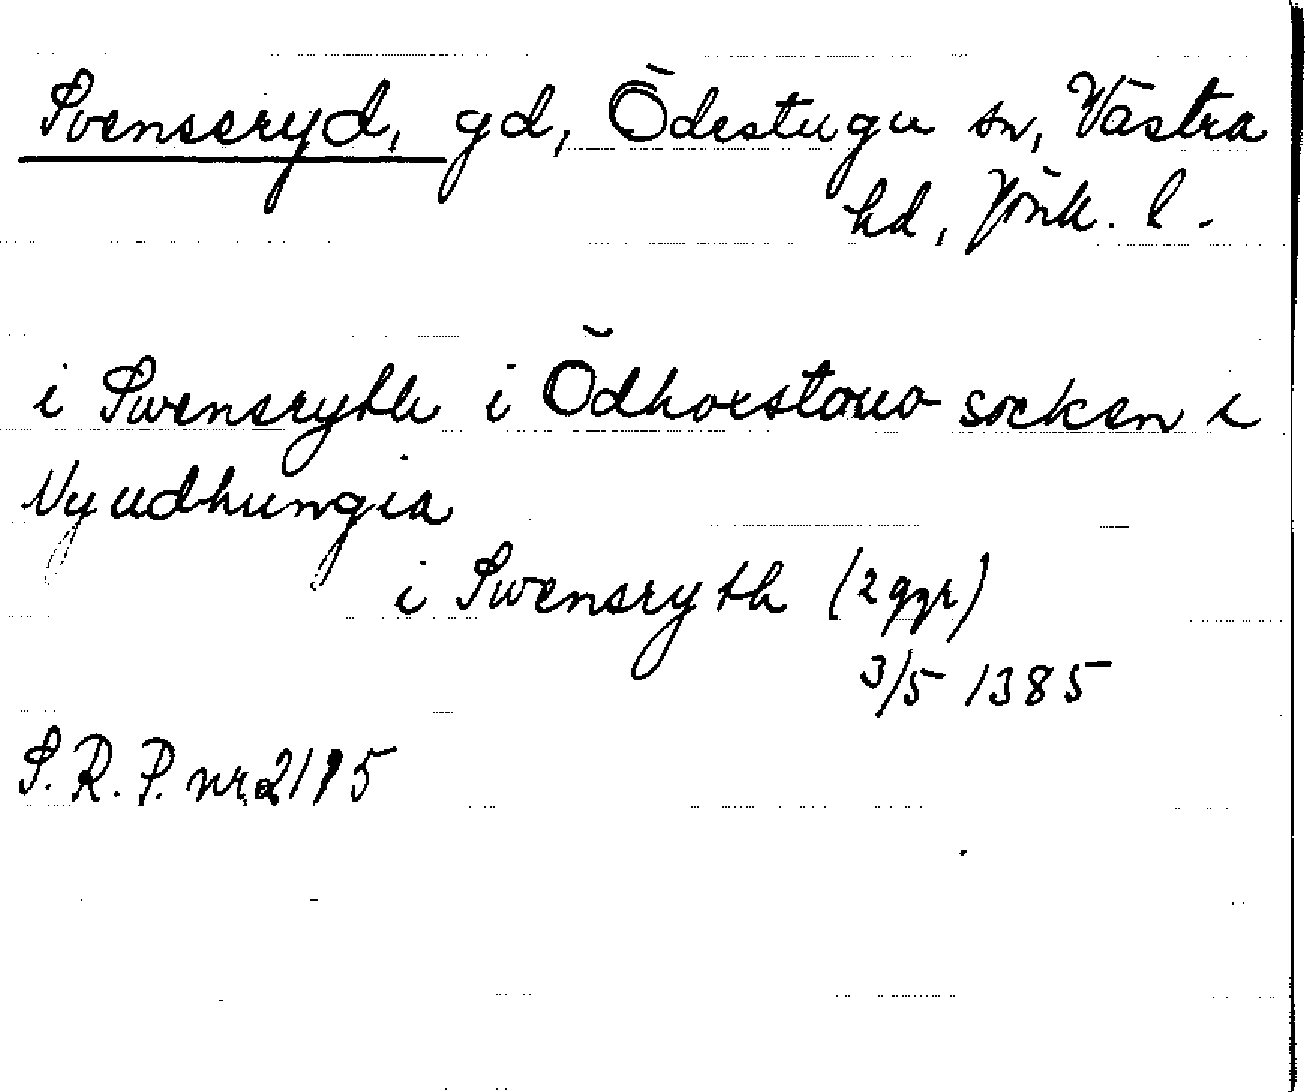 Svenseryd, gd, Ödestugu sn, Västra
hd, Jönk. l.
i Swenserythe i Ödhoestowo socken i
Nyudhungia
i Swensryth (2 ggr)
3/5 1385
S.R.P. nr 2195